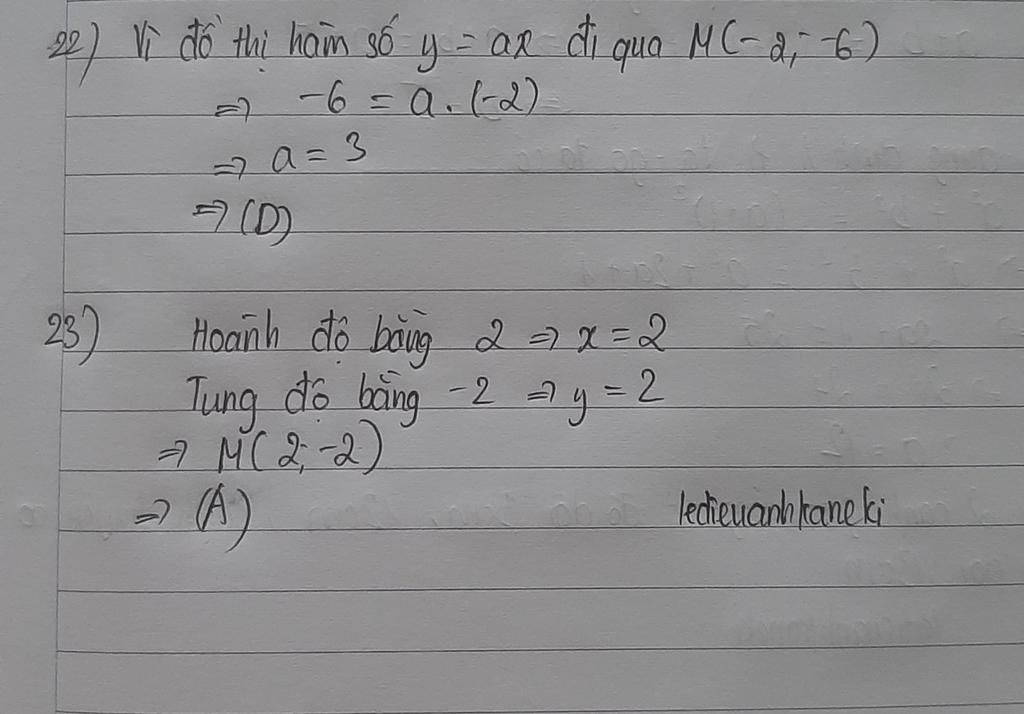 22) Vì đồ thị hàm số y = ax đi qua M(-2; -6)
=> -6 = a . (-2)
=> a = 3
=> (D)
23) Hoành độ bằng 2 => x = 2
Tung độ bằng -2 => y = 2
=> M(2; -2)
=> (A)
ledieuanhkaneki